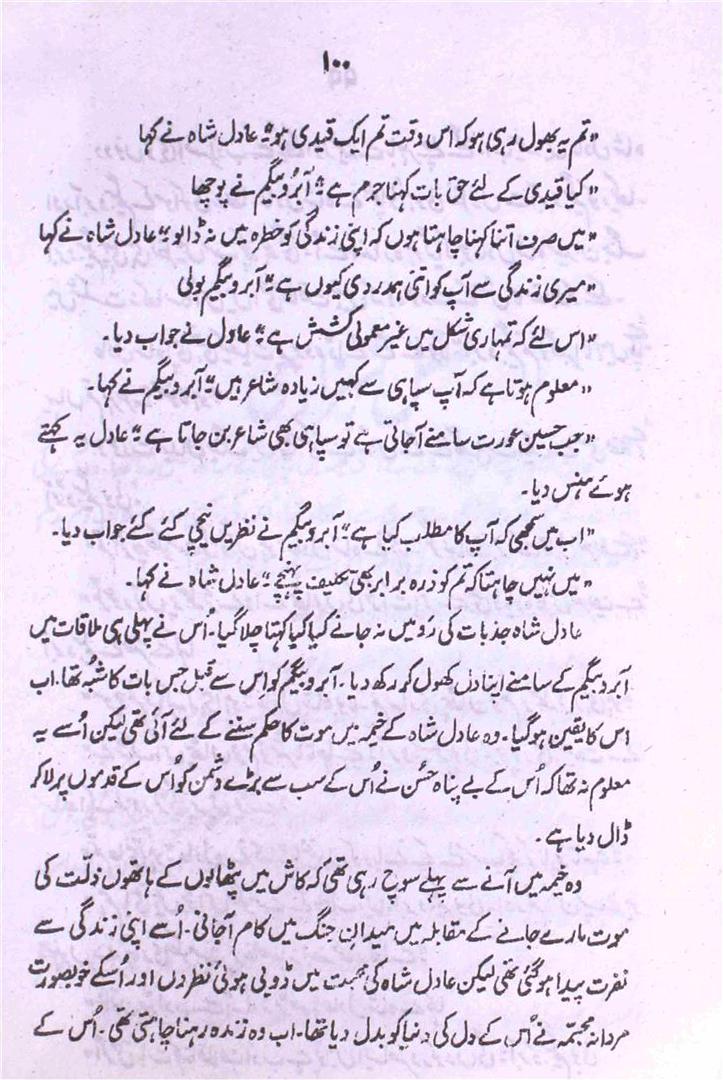 ۱۰۰
"تم یہ بھول رہی ہو کہ اس وقت تم ایک قیدی ہو" عادل شاہ نے کہا
"کیا قیدی کے لئے حق بات کہنا جرم ہے" آبرو بیگم نے پوچھا
"میں صرف اتنا کہنا چاہتا ہوں کہ اپنی زندگی کو خطرہ میں نہ ڈالو" عادل شاہ نے کہا
"میری زندگی سے آپ کو اتنی ہمدردی کیوں ہے" آبرو بیگم بولی
"اس لئے کہ تمہاری شکل میں غیر معمولی کشش ہے" عادل نے جواب دیا۔
"معلوم ہوتا ہے کہ آپ سپاہی سے کہیں زیادہ شاعر ہیں" آبرو بیگم نے کہا۔
"جب حسین عورت سامنے آجاتی ہے تو سپاہی بھی شاعر بن جاتا ہے" عادل یہ کہتے
ہوئے ہنس دیا۔
"اب میں سمجھی کہ آپ کا مطلب کیا ہے" آبرو بیگم نے نظریں نیچی کئے کئے جواب دیا۔
"میں نہیں چاہتا کہ تم کو ذرہ برابر بھی تکلیف پہنچے" عادل شاہ نے کہا۔
عادل شاہ جذبات کی رَو میں نہ جانے کیا کیا کہتا چلا گیا۔ اس نے پہلی ہی ملاقات میں
آبرو بیگم کے سامنے اپنا دل کھول کر رکھ دیا۔ آبرو بیگم کو اِس سے قبل جس بات کا شبُہ تھا۔ اب
اس کا یقین ہوگیا۔ وہ عادل شاہ کے خیمہ میں موت کا حکم سننے کے لئے آئی تھی لیکن اُسے یہ
معلوم نہ تھا کہ اُس کے بے پناہ حسُن نے اُس کے سب سے بڑے دشمن کو اُس کے قدموں پر لا کر
ڈال دیا ہے۔
وہ خیمہ میں آنے سے پہلے سوچ رہی تھی کہ کاش میں پٹھانوں کے ہاتھوں ذلّت کی
موت مارے جانے کے مقابلہ میں میدانِ جنگ میں کام آجاتی۔ اُسے اپنی زندگی سے
نفرت پیدا ہو گئی تھی لیکن عادل شاہ کی محبت میں ڈوبی ہوئی نظروں اور اُسکے خوبصورت
مردانہ مجسّمہ نے اُس کے دل کی دنیا کو بدل دیا تھا۔ اب وہ زندہ رہنا چاہتی تھی۔ اُس کے